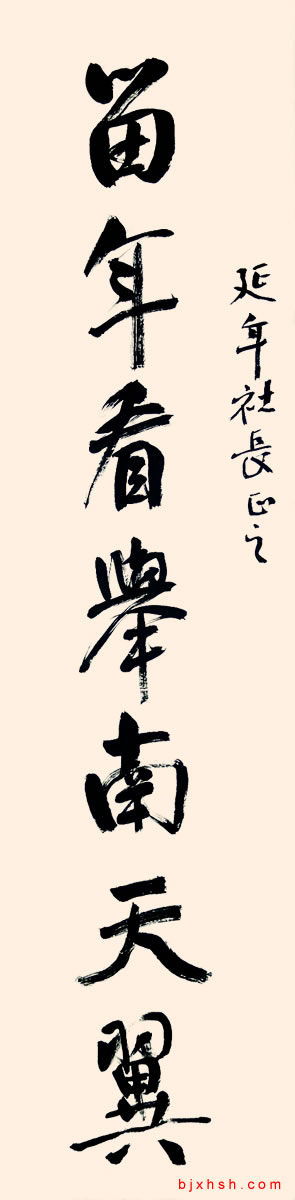 延年社長正之
當年看舉南天翼
bjxhsh.com